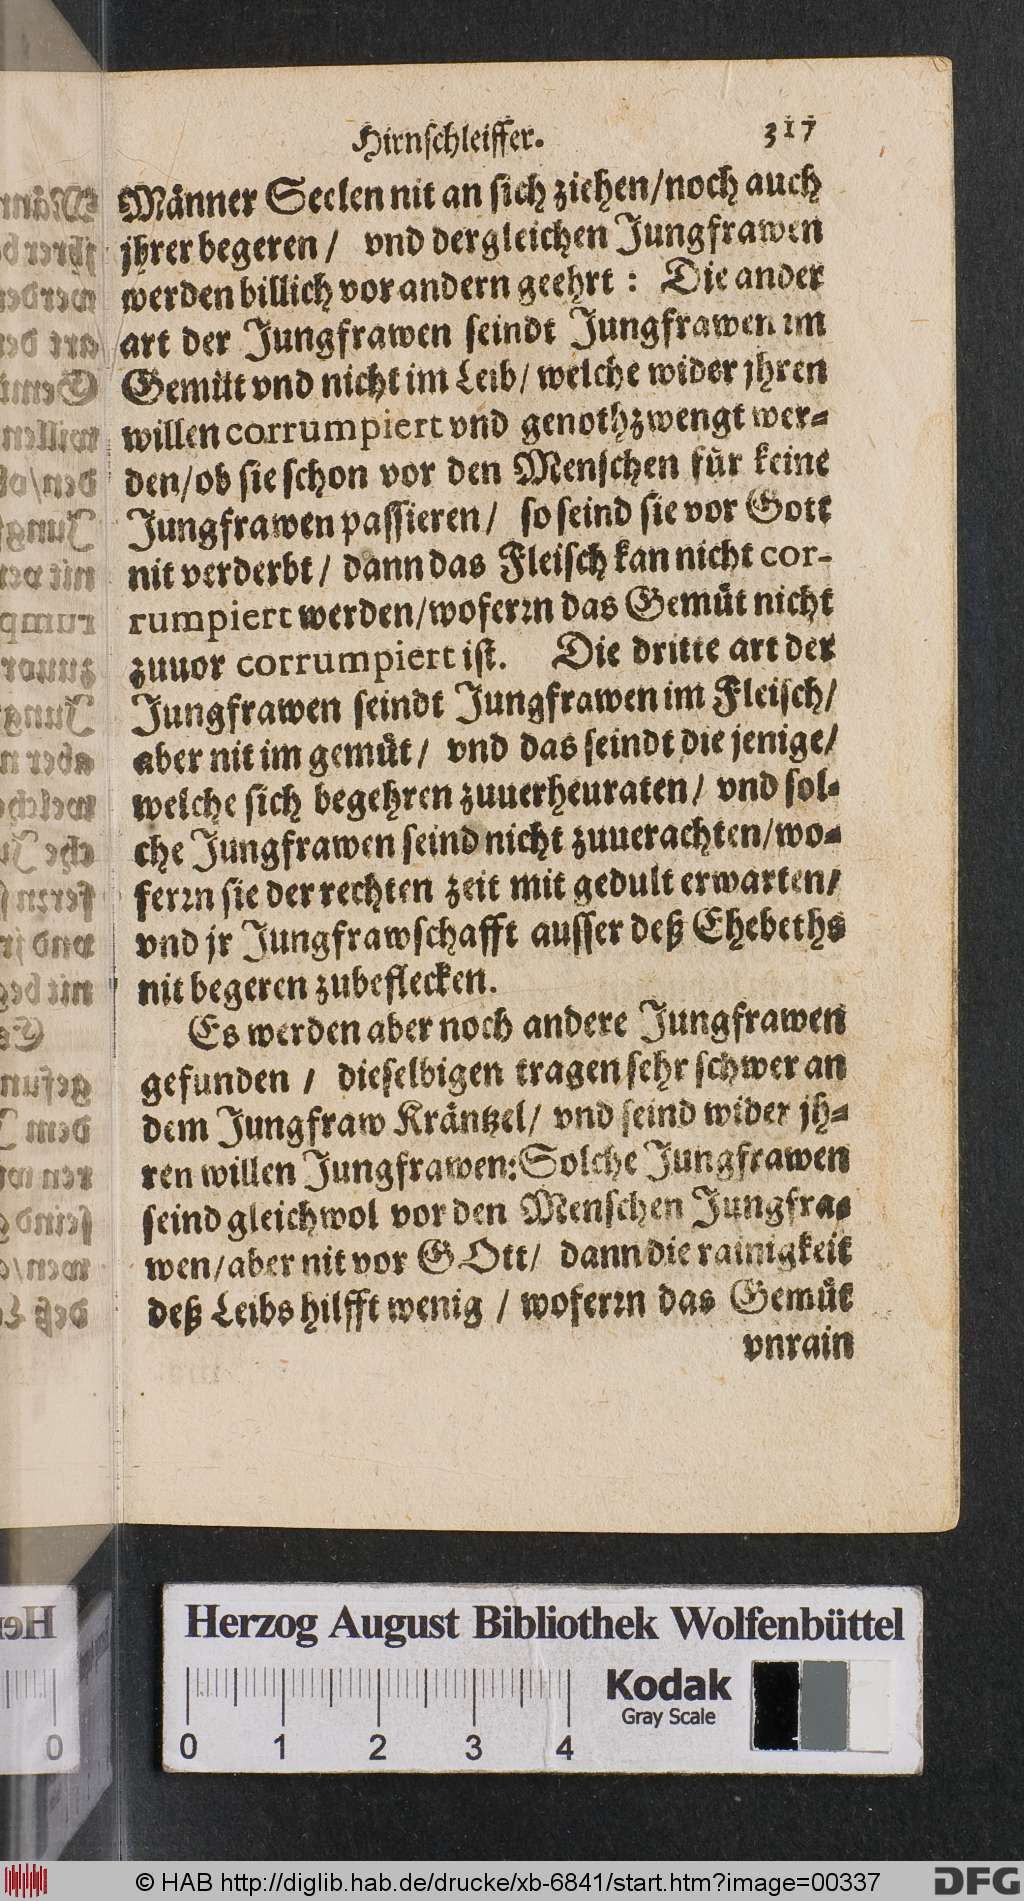 Hirnschleiffer. 317
Männer Seelen nit an sich ziehen/noch auch
jhrer begeren / vnd dergleichen Jungfrawen
werden billich vor andern geehrt : Die ander
art der Jungfrawen seindt Jungfrawen im
Gemüt vnd nicht im Leib/ welche wider jhren
willen corrumpiert vnd genothzwengt wer-
den/ob sie schon vor den Menschen für keine
Jungfrawen passieren/ so seind sie vor Gott
nit verderbt / dann das Fleisch kan nicht cor-
rumpiert werden/woferrn das Gemüt nicht
zuuor corrumpiert ist. Die dritte art der
Jungfrawen seindt Jungfrawen im Fleisch/
aber nit im gemüt / vnd das seindt die jenige/
welche sich begehren zuuerheuraten / vnd sol-
che Jungfrawen seind nicht zuuerachten/wo-
ferrn sie der rechten zeit mit gedult erwarten/
vnd jr Jungfrawschafft ausser deß Ehebeths
nit begeren zubeflecken.
Es werden aber noch andere Jungfrawen
gefunden / dieselbigen tragen sehr schwer an
dem Jungfraw Kräntzel/ vnd seind wider jh-
ren willen Jungfrawen: Solche Jungfrawen
seind gleichwol vor den Menschen Jungfra-
wen/aber nit vor GOtt/ dann die rainigkeit
deß Leibs hilfft wenig / woferrn das Gemüt
vnrain
Herzog August Bibliothek Wolfenbüttel
Kodak
Gray Scale
0 1 2 3 4
© HAB http://diglib.hab.de/drucke/xb-6841/start.htm?image=00337
DFG